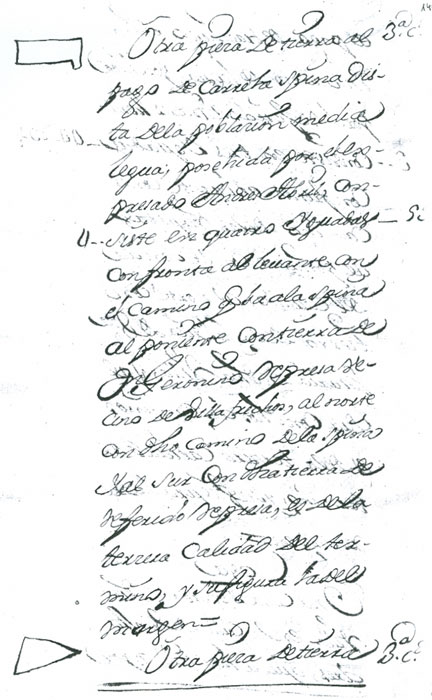 14
Otra pieza de tierra al 3.ª c.ᵉ
pago de Carreta Spina dis-
ta de la poblacion media
legua, posehida por el ex-
presado Andres, con-
U-- siste en quatro Yguadas -- 5:
confronta al levante con
el camino q ba a la Spina
al poniente con tierra de
Dn Geronimo Represa Ve-
cino de Villafrechos, al norte
con dho Camino de la Spina
Y al Sur con otra tierra de
Referido Represa, es de la
tercera Calidad del ter-
mino, y su figura la del
margen =
Otra pieza de tierra 3.ª c.ᵉ